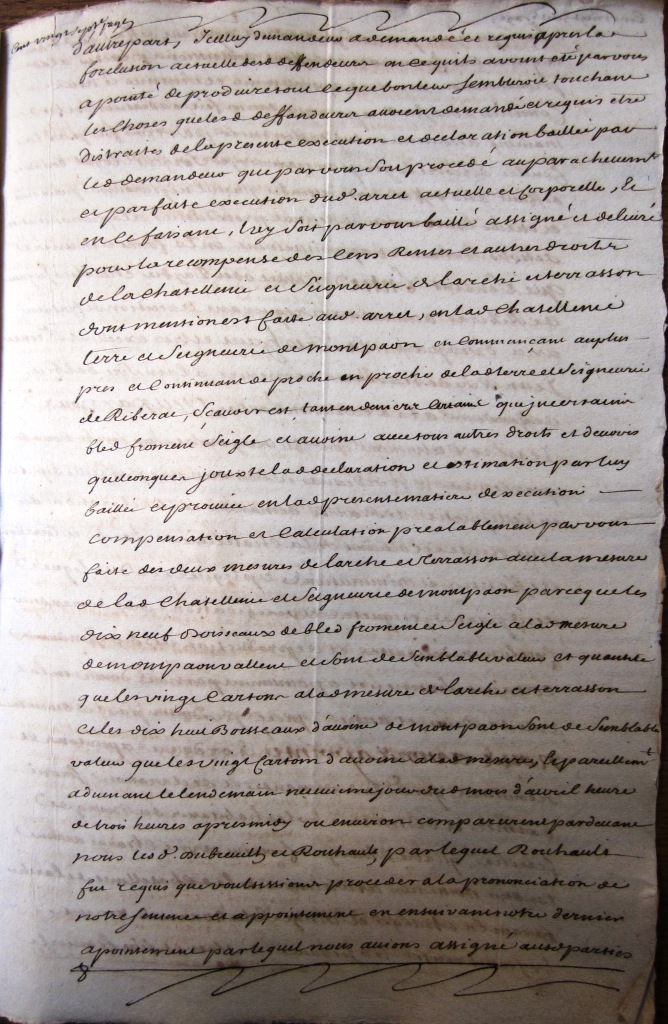 Cent vingt sept
d'autre part, Icelluy demandeur a demandé et requis apres la
forclusion actuelle desd deffendeurs en ce quils avoient été par vous
apointé de produire tout ce que bon leur sembleroit touchant
les choses que lesd deffandeurs avoient demandé et requis etre
distraites de la presente execution et declaration baillée par
led demandeur que par vous soit procedé au parachevemt
et parfaite execution dud. arret actuelle et corporelle, Et
en ce faisant, luy soit par vous baillé assigné et delivré
pour la recompense des cens Rentes et autres droits
de la Chatellenie et Seigneurie de larche et terrasson
dont mention est faite aud. arret, en lad Chatellenie
terre et Seigneurie de montpaon en commançant au plus
pres et continuant de proche en proche de lad terre et Seigneurie
de Riberac, Scavoir est, tant en deniers certains que incertains
bled froment Seigle et avoine avec tous autres droits et devoirs
quelconques jouxte lad declaration et estimation par luy
baillée et prouvée en lad presente matiere dexecution
compensation et calculation prealablement par vous
faite des deux mesures de larche et terrasson avec la mesure
de lad Chatellenie et Seigneurie de montpaon parceque les
dix neuf Boisseaux de bled froment et Seigle a lad mesure
de montpaon vallent et sont de semblable valeur et quantité
que les vingt Cartons a lad mesure de larche et terrasson
et les dix huit Boisseaux d'avoine de montpaon sont de semblable
valeur que les vingt Cartons d'avoine a lad mesure, Et pareillemt
advenant le lendemain neuvieme jour dud mois d'avril heure
de trois heures apres midy ou environ comparurent pardevant
nous lesd. Dubreuilh et Rouhault, par lequel Rouhault
fut requis que voulussions proceder a la prononciation de
notre Sentence et appointement en ensuivant notre dernier
apointement par lequel nous avions assigné ausd parties